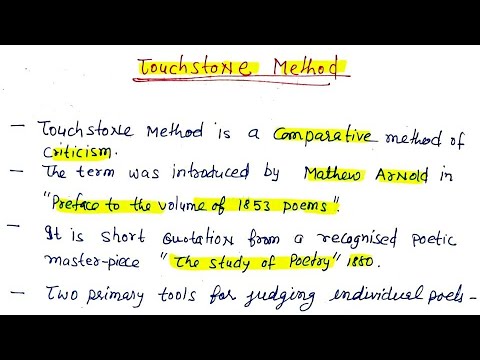 Touchstone Method
– Touchstone Method is a comparative method of
criticism.
– The term was introduced by Mathew Arnold in
"Preface to the volume of 1853 poems".
– It is short quotation from a recognised poetic
master-piece "The study of Poetry" 1880.
– Two primary tools for judging individual poets -